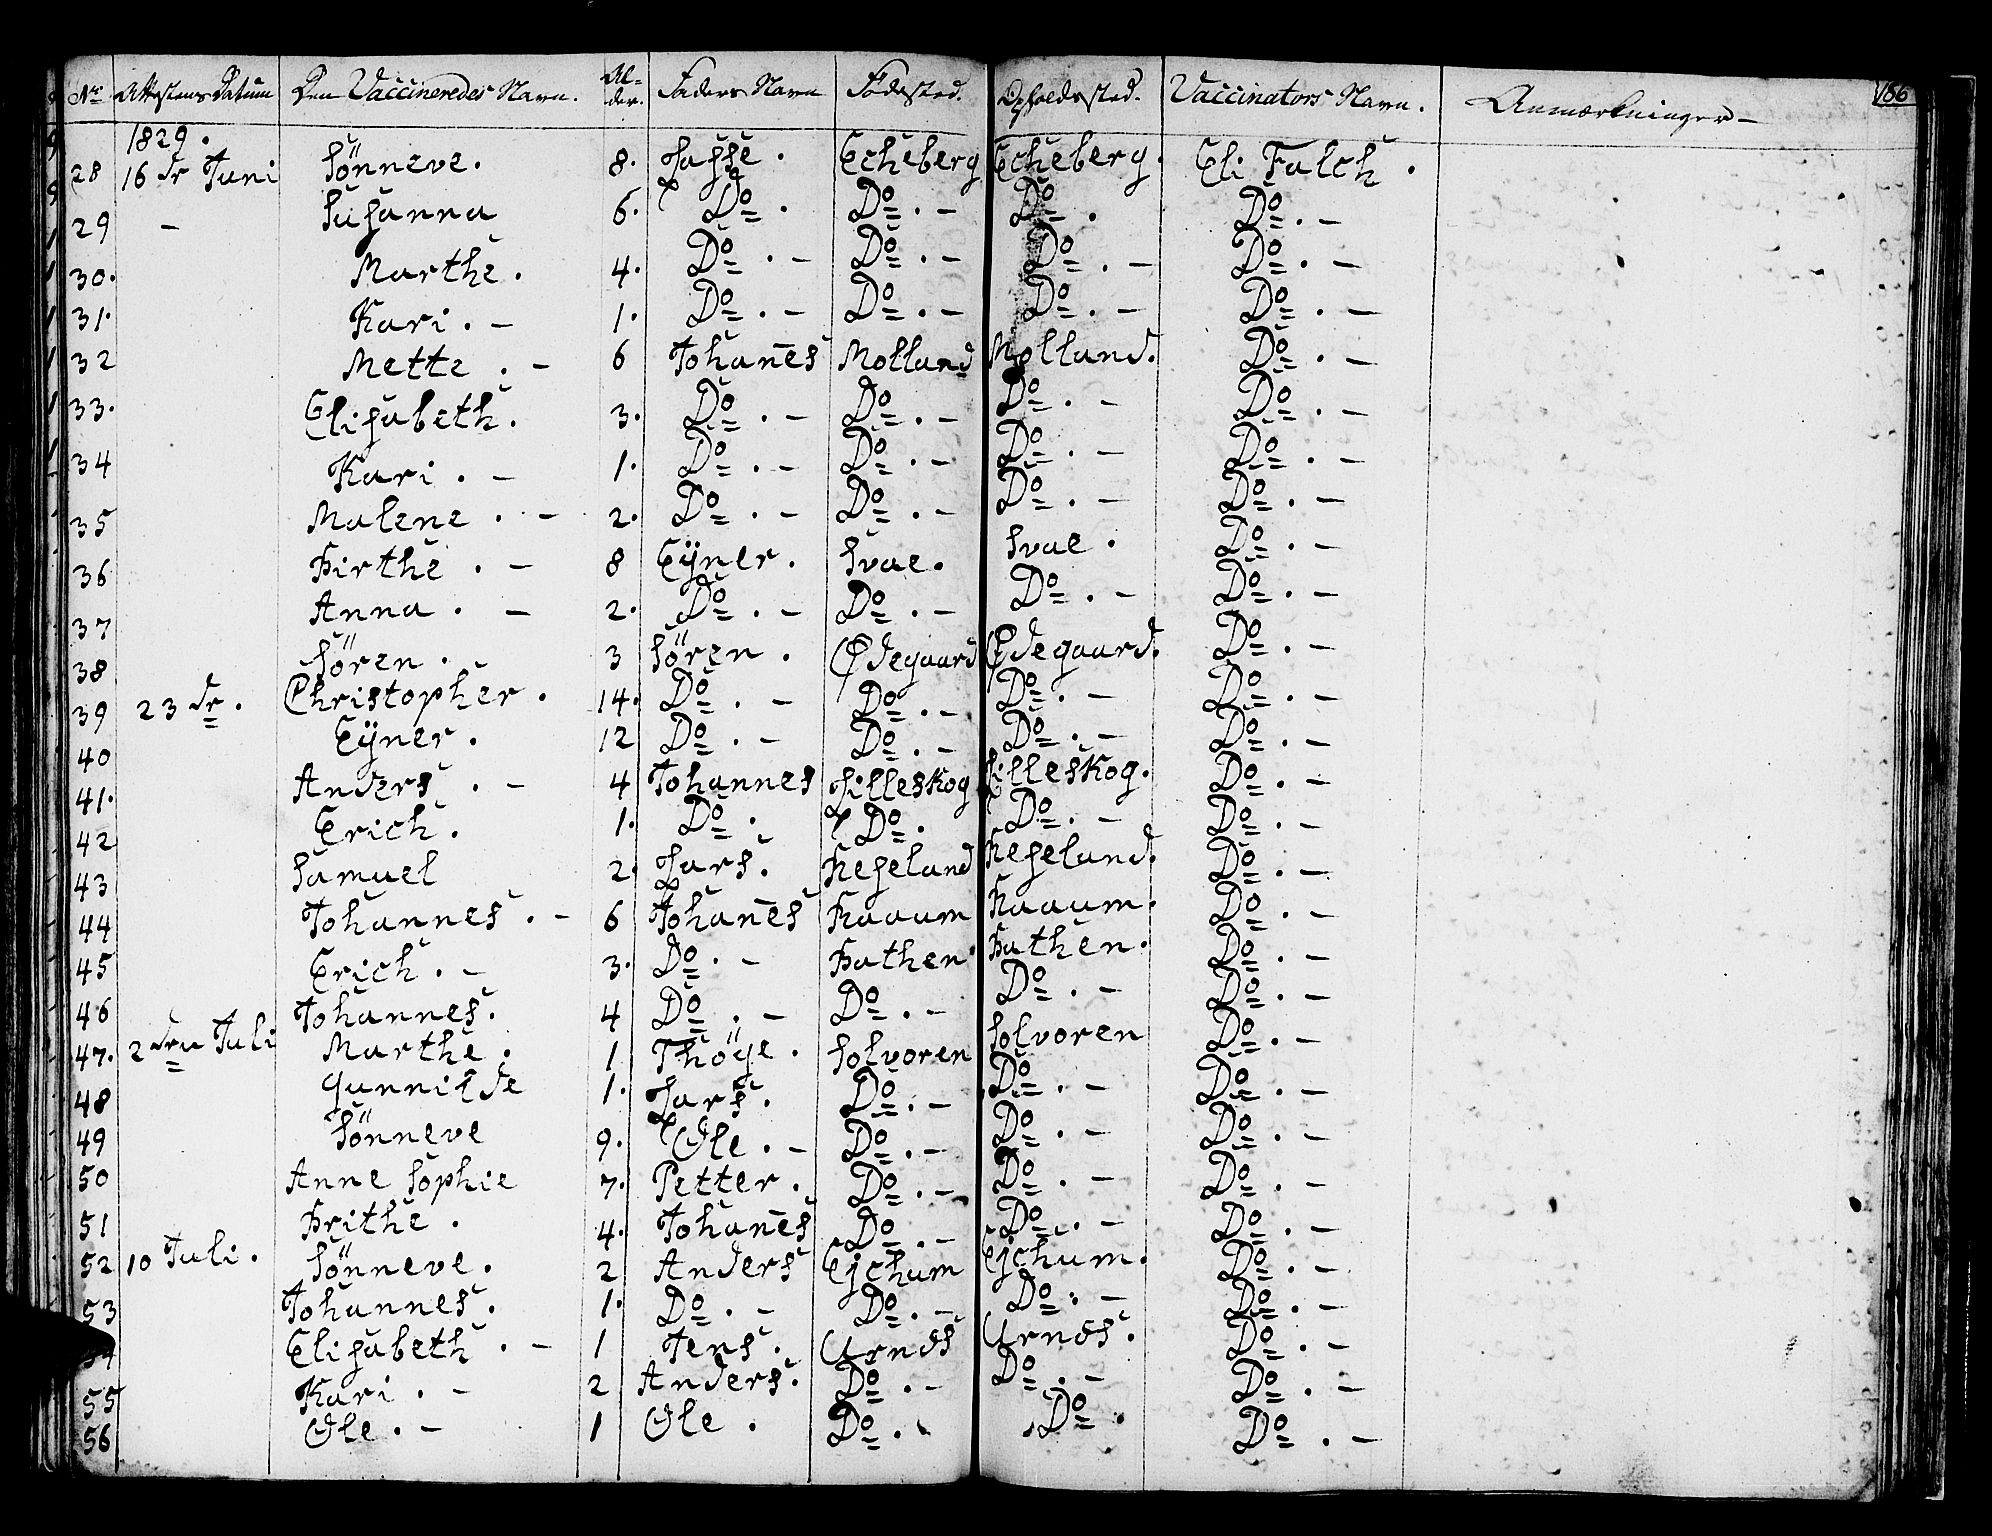 186
No Attestens Datum Den Vaccineredes Navn. Al-der. Faders Navn Fødested. Opholdssted. Vaccinators Navn. Anmærkninger
1829.
28 16de Juni Sønneve. 8. Lasse. Echeberg Echeberg. Eli Falch.
29 – Susanna 6. Do. Do. – Do. Do. –
30. Marthe. 4. Do. – Do. – Do. – Do. –
31. Kari. – 1. Do. – Do. – Do. – Do. –
32 Mette. – 6 Johanes Molland Molland. Do. –
33. Elisabeth. 3. Do. – Do. – Do. – Do. –
34 Kari. – 1. Do. – Do. – Do. – Do. –
35 Malene. – 2. Do. – Do. – Do. – Do. –
36 Birthe. – 8 Eÿner. Svae. Svae. Do. –
37 Anna. – 2. Do. – Do. – Do. – Do. –
38 Søren. 3 Søren. Ødegaard Ødegaard. Do. –
39 23de. Christopher. 14. Do. – Do. – Do. – Do. –
40 Eÿner. 12 Do. – Do. – Do. – Do. –
41. Anders. – 4 Johannes Lilleskog Lilleskog. Do. –
42 Erich. 1. Do. Do. Do. – Do. –
43 Samuel 2. Lars. Heseland Heseland. Do. –
44 Johannes. – 6 Johanes Kaaum Kaaum. Do. –
45 Erich. – 3. Do. – Bathen. Bathen. Do. –
46 Johannes. 4 Do. – Do. – Do. – Do. –
47. 2den Juli Marthe. 1 Thöge. Solvoren Solvoren Do. –
48 Gunnilde 1. Lars. Do. – Do. – Do. –
49 Sønneve 9. Ole. – Do. – Do. – Do. –
50 Anne Sophie 7. Petter. Do. – Do. – Do. –
51 Brithe. 4. Johanes Do. – Do. – Do. –
52 10 Juli. Sønneve. 2 Anders Ejchum Ejchum. Do. –
53 Johannes. 1. Do. – Do. – Do. – Do. –
54 Elisabeth. – 1 Jens. Urnæs Urnæs. Do. –
55 Kari. – 2 Anders. Do. – Do. – Do. –
56 Ole. – 1 Ole. Do. Do. Do. –